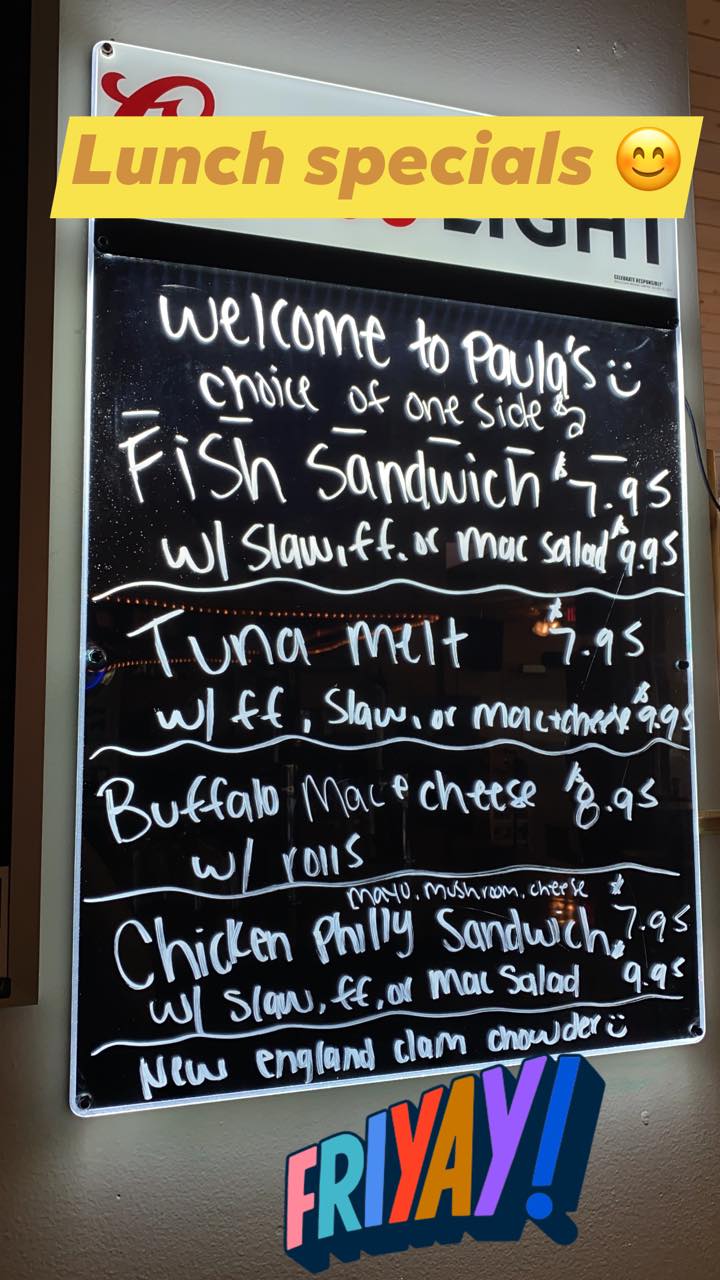 Lunch specials 😊
LIGHT
CELEBRATE RESPONSIBLY®
Welcome to Paula's
choice of one side $2
Fish Sandwich $7.95
w/ Slaw, ff. or mac salad $9.95
Tuna melt $7.95
w/ ff, Slaw, or mac+cheese $9.95
Buffalo Mac & cheese $8.95
w/ rolls
mayo, mushroom, cheese
Chicken Philly Sandwich $7.95
w/ Slaw, ff, or Mac Salad $9.95
New england clam chowder
FRIYAY!